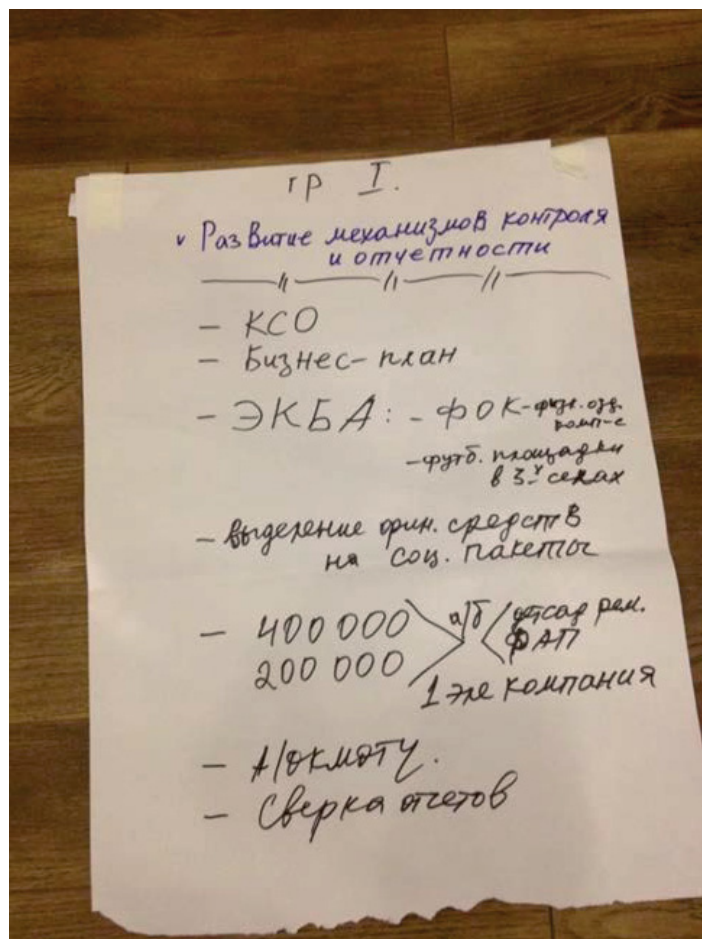 гр I.
v Развитие механизмов контроля
и отчетности
- КСО
- Бизнес-план
- ЭКБА: - ФОК - физк. озд.
комп-с
- футб. площадки
в 3-х селах
- выделение фин. средств
на соц. пакеты
- 400 000 а/б детсад рем.
200 000 ФАП
1 эле компания
- А/өкмөтү.
- Сверка отчетов